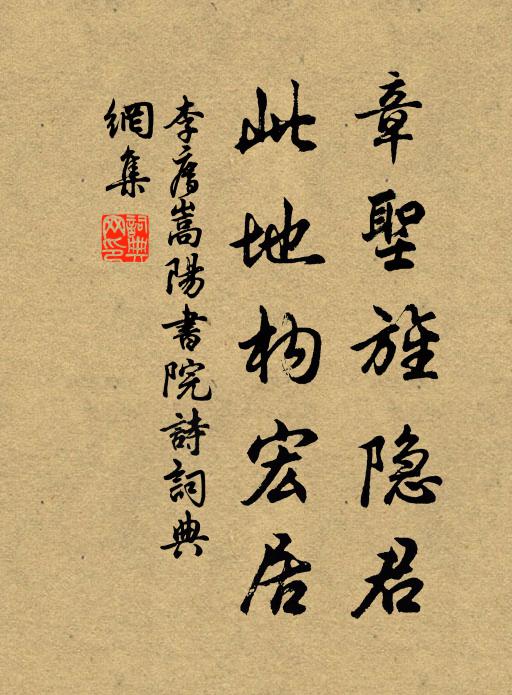 章聖旌隐君
此地构宏居
李廌嵩陽書院詩詞典
網集
詞典
网印